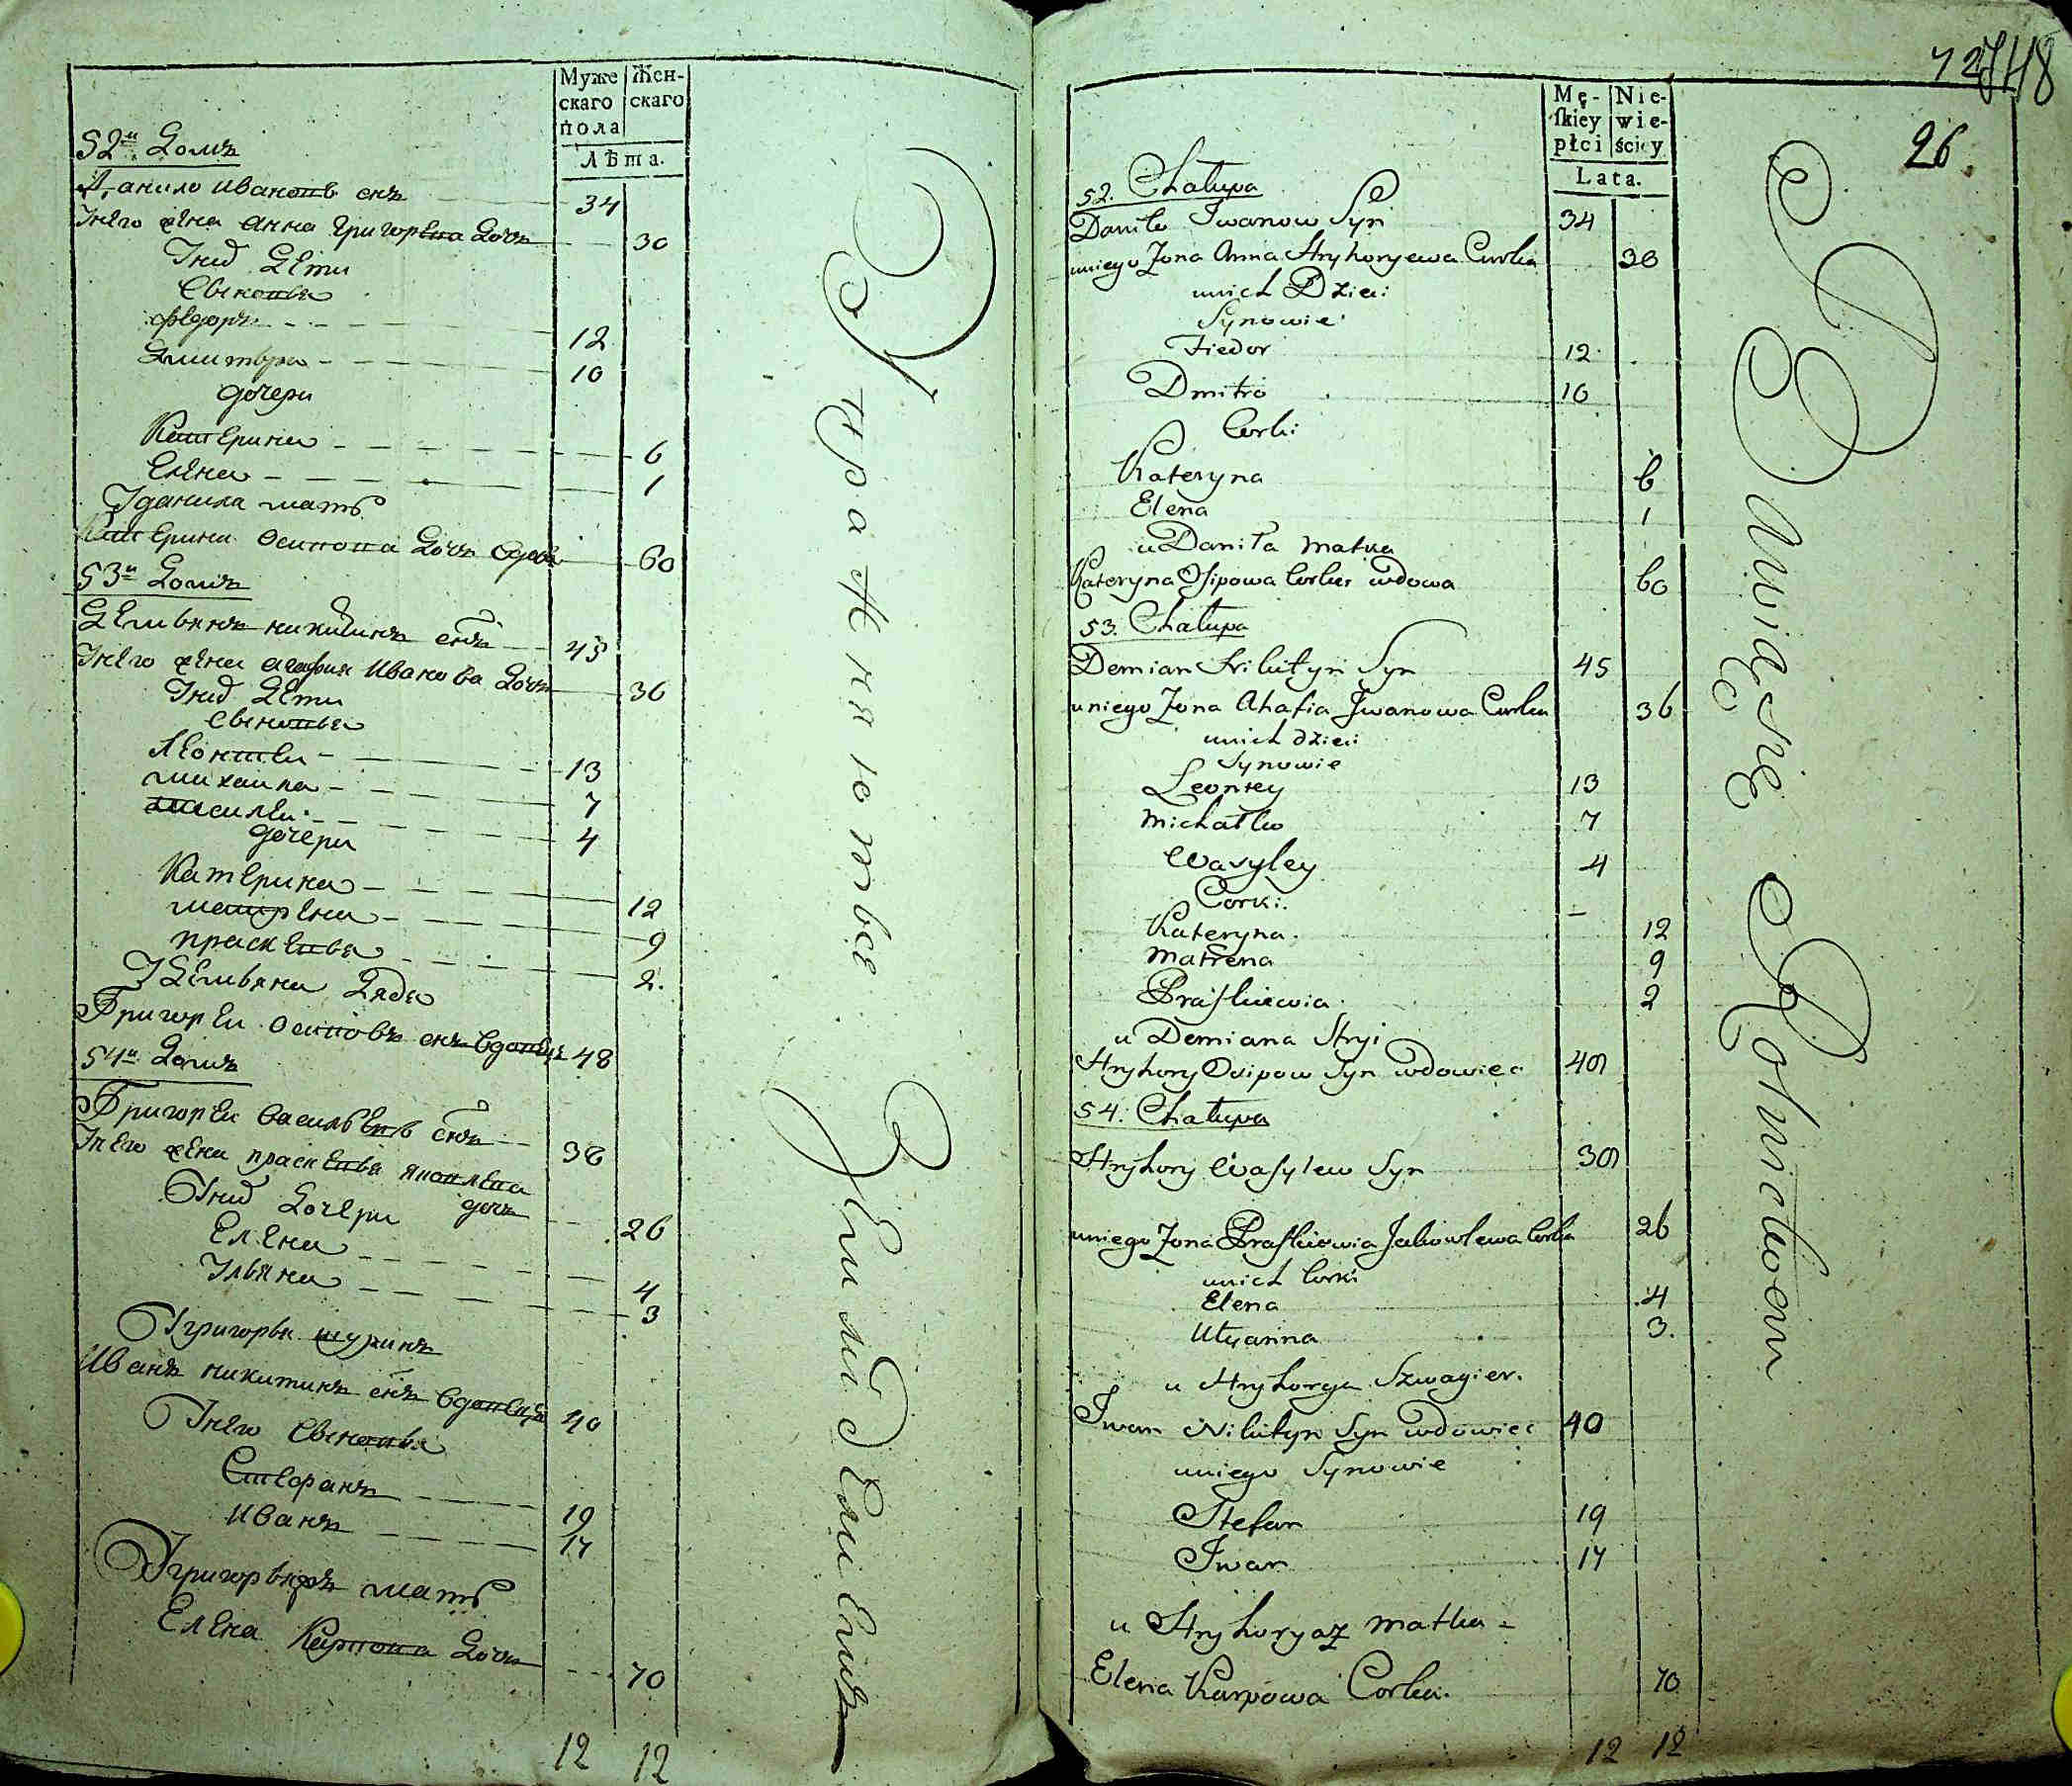 Муже
скаго
пола
Жен-
скаго
Лѣта.
52й Домъ
Данило Ивановъ снъ 34
Унего жена Анна Григорева Дочь 30
Уних Дети
Сыновья
Федоръ 12
Дмитра 10
дочери
Катерина 6
Елена 1
У данила мать
Катерина Осипова Дочь вдова 60
53й Домъ
Демьянъ никитинъ снъ 45
Унего жена агафия Иванова Дочь 36
Уних Дети
Сыновья
Леонтеи 13
михаила 7
василеи 4
дочери
Катерина 12
матрена 9
прасковья 2.
У Демьяна Дядя
Григореи Осиповъ снъ вдовецъ 48
54й Домъ
Григореи васильевъ снъ 38
Унего жена прасковья яковлева
дочь 26
Уних Дочери
Елена 4
Ульяна 3
У григорья шуринъ
Иванъ никитинъ снъ вдовецъ 40
Унего Сыновья
Стефанъ 19
Иванъ 17
У григорья жъ мать
Елена Карпова Дочь 70
12 12
Упражняютвсе
Землиделиемъ
7
26.
Mę-
skiey
płci
Nie-
wie-
ściey
Lata.
52. Chałupa
Daniło Iwanow Syn 34
uniego Zona Anna Hryhoryewa Curka 30
unich Dzieci
Synowie
Fiedor 12
Dmitro 10
Corki
Kateryna 6
Elena 1
u Daniła Matka
Kateryna Osipowa Corka wdowa 60
53. Chałupa
Demian Nikityn Syn 45
uniego Zona Ahafia Jwanowa Curka 36
unich dzieci
Synowie
Leontey 13
Michałko 7
Wasyley 4
Corki.
Kateryna. 12
Matrena 9
Praskiewia 2
u Demiana Stryi
Hryhory Osipow Syn wdowiec 48
54. Chałupa
Hryhory Wasylew Syn 38
uniego Zona Praskiewia Jakowlewa Corka 26
unich Corki
Elena 4
Ulyanna 3.
u Hryhorya Szwagier.
Jwan Nikityn Syn wdowiec 40
uniego Synowie
Stefan 19
Jwan 17
u Hryhorya z Matka -
Elena Karpowa Corka. 70
12 12
Bawią się Rolnictwem